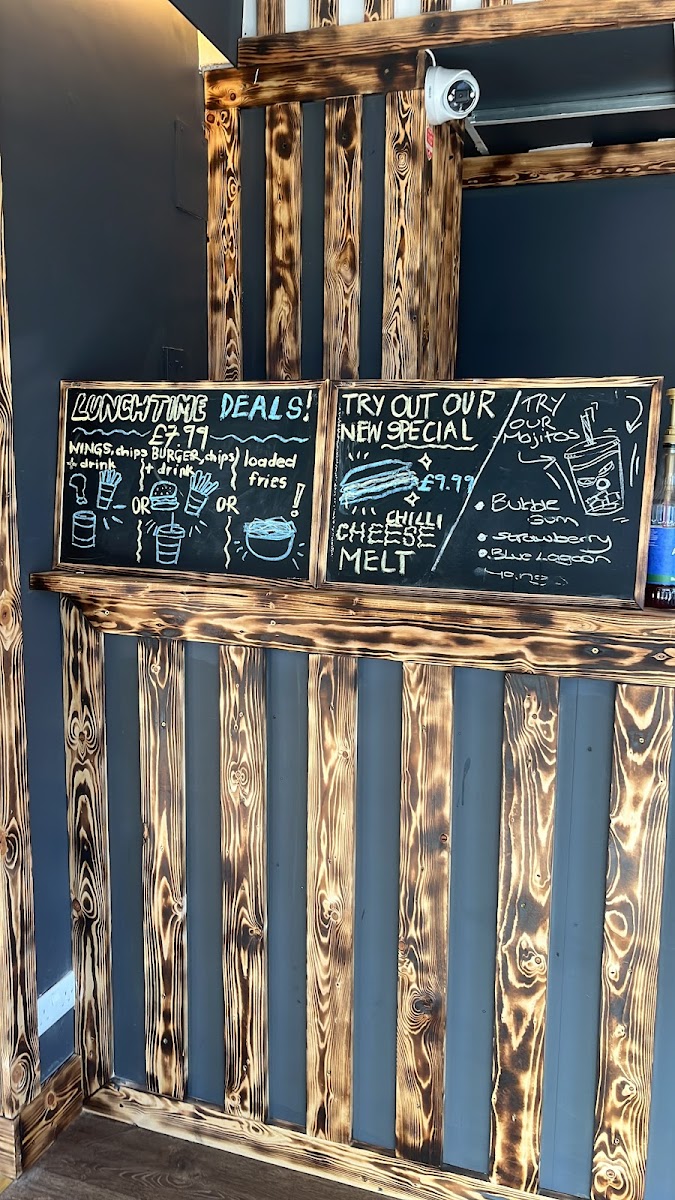 LUNCHTIME DEALS!
£7.99
WINGS, chips
+ drink
OR
BURGER, chips
+ drink
OR
loaded
fries
!
TRY OUT OUR
NEW SPECIAL
£9.99
CHILLI
CHEESE
MELT
TRY
OUR
Mojitos
• Bubble
Gum
• Strawberry
• Blue Lagoon